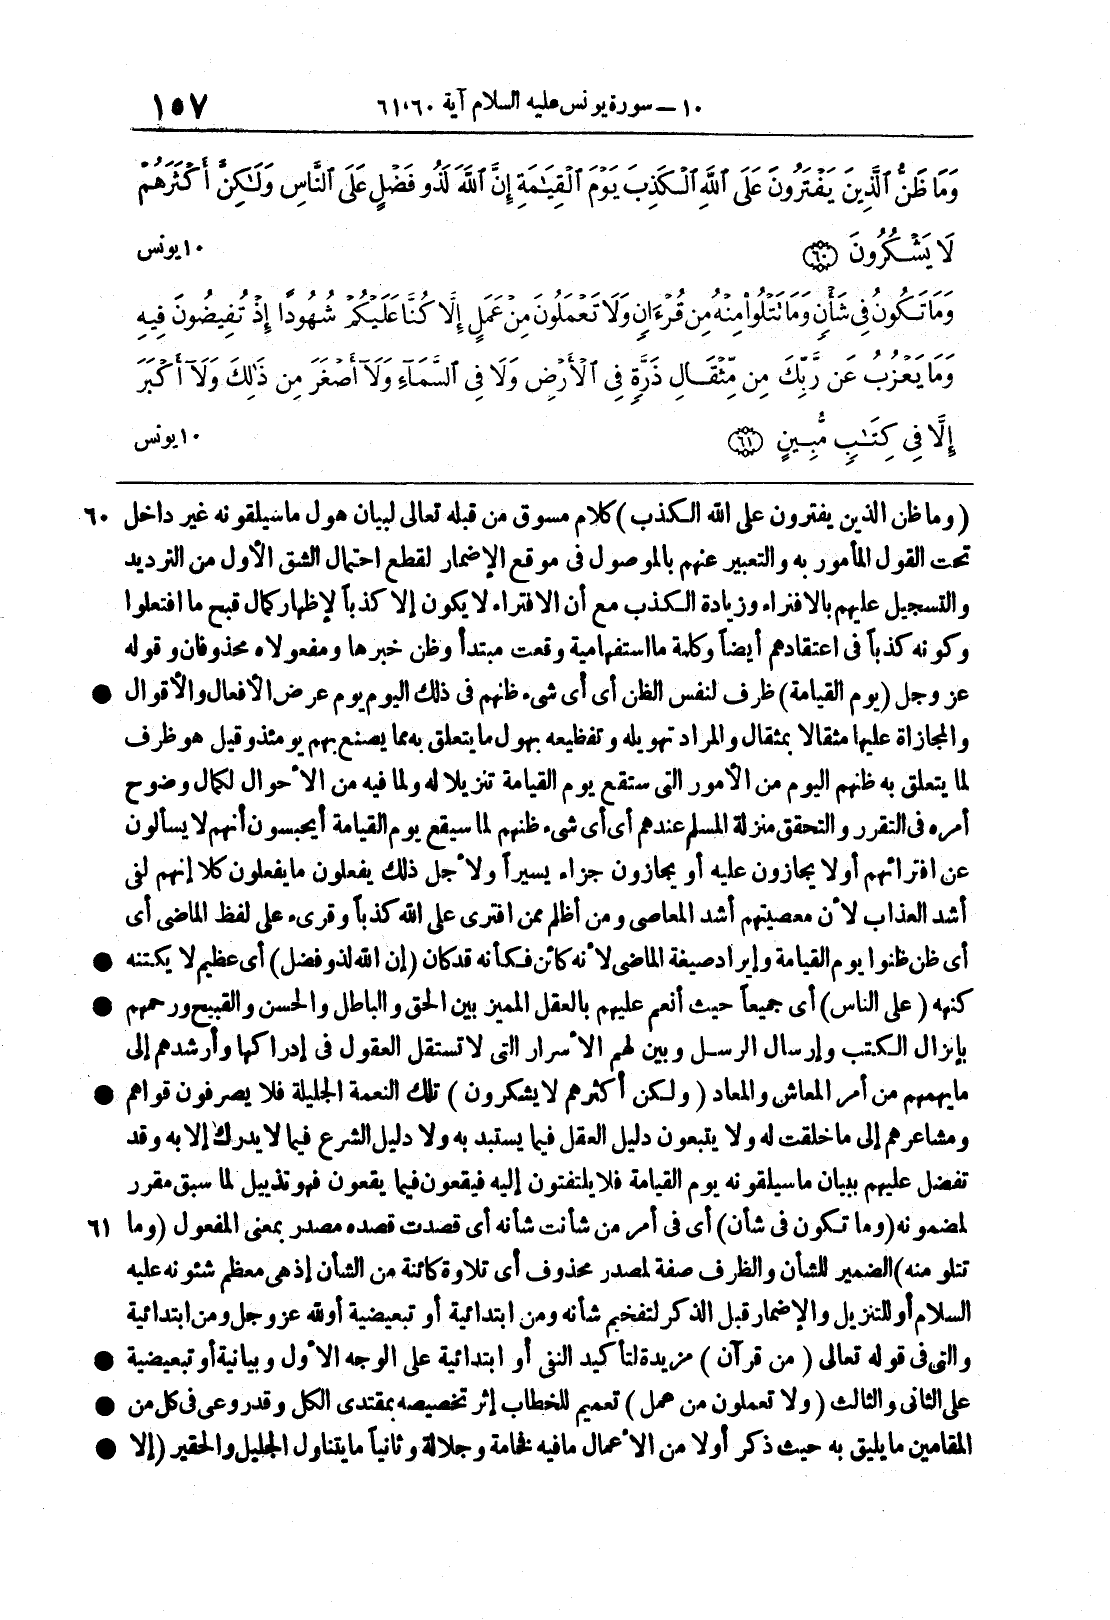 ١٠ – سورة يونس عليه السلام آية ٦١،٦٠ ١٥٧
وَمَا ظَنُّ ٱلَّذِينَ يَفْتَرُونَ عَلَى ٱللَّهِ ٱلْكَذِبَ يَوْمَ ٱلْقِيَٰمَةِ إِنَّ ٱللَّهَ لَذُو فَضْلٍ عَلَى ٱلنَّاسِ وَلَٰكِنَّ أَكْثَرَهُمْ
لَا يَشْكُرُونَ ٦٠ ١٠ يونس
وَمَا تَكُونُ فِى شَأْنٍ وَمَا تَتْلُوا۟ مِنْهُ مِن قُرْءَانٍ وَلَا تَعْمَلُونَ مِنْ عَمَلٍ إِلَّا كُنَّا عَلَيْكُمْ شُهُودًا إِذْ تُفِيضُونَ فِيهِ
وَمَا يَعْزُبُ عَن رَّبِّكَ مِن مِّثْقَالِ ذَرَّةٍ فِى ٱلْأَرْضِ وَلَا فِى ٱلسَّمَآءِ وَلَآ أَصْغَرَ مِن ذَٰلِكَ وَلَآ أَكْبَرَ
إِلَّا فِى كِتَٰبٍ مُّبِينٍ ٦١ ١٠ يونس
(وما ظن الذين يفترون على الله الكذب) كلام مسوق من قبله تعالى لبيان هول ما سيلقونه غير داخل ٦٠
تحت القول المأمور به والتعبير عنهم بالموصول فى موقع الإضمار لقطع احتمال الشق الأول من الترديد
والتسجيل عليهم بالافتراء وزيادة الكذب مع أن الافتراء لا يكون إلا كذباً لإظهار كمال قبح ما افتعلوا
وكونه كذباً فى اعتقادهم أيضاً وكلمة ما استفهامية وقعت مبتدأ وظن خبرها ومفعولاه محذوفان وقوله
عز وجل (يوم القيامة) ظرف لنفس الظن أى أى شىء ظنهم فى ذلك اليوم يوم عرض الأفعال والأقوال ●
والمجازاة عليها مثقالا بمثقال والمراد تهويله وتفظيعه بهول ما يتعلق به مما يصنع بهم يومئذ وقيل هو ظرف
لما يتعلق به ظنهم اليوم من الأمور التى ستقع يوم القيامة تنزيلا له ولما فيه من الأحوال لكمال وضوح
أمره فى التقرر والتحقق منزلة المسلم عندهم أى أى شىء ظنهم لما سيقع يوم القيامة أيحسبون أنهم لا يسألون
عن افترائهم أو لا يجازون عليه أو يجازون جزاء يسيراً ولأجل ذلك يفعلون ما يفعلون كلا إنهم لفى
أشد العذاب لأن معصيتهم أشد المعاصى ومن أظلم ممن افترى على الله كذباً وقرىء على لفظ الماضى أى
أى ظن ظنوا يوم القيامة وإيراد صيغة الماضى لأنه كائن فكأنه قد كان (إن الله لذو فضل) أى عظيم لا يكتنه ●
كنهه (على الناس) أى جميعاً حيث أنعم عليهم بالعقل المميز بين الحق والباطل والحسن والقبيح ورحمهم ●
بإنزال الكتب وإرسال الرسل وبين لهم الأسرار التى لا تستقل العقول فى إدراكها وأرشدهم إلى
ما يهمهم من أمر المعاش والمعاد (ولكن أكثرهم لا يشكرون) تلك النعمة الجليلة فلا يصرفون قواهم ●
ومشاعرهم إلى ما خلقت له ولا يتبعون دليل العقل فيما يستبد به ولا دليل الشرع فيما لا يدرك إلا به وقد
تفضل عليهم ببيان ما سيلقونه يوم القيامة فلا يلتفتون إليه فيقعون فيما يقعون فهو تذييل لما سبق مقرر
لمضمونه (وما تكون فى شأن) أى فى أمر من شأنت شأنه أى قصدت قصده مصدر بمعنى المفعول (وما ٦١
تتلو منه) الضمير للشأن والظرف صفة لمصدر محذوف أى تلاوة كائنة من الشأن إذ هى معظم شئونه عليه
السلام أو للتنزيل والإضمار قبل الذكر لتفخيم شأنه ومن ابتدائية أو تبعيضية أو لله عز وجل ومن ابتدائية
والتى فى قوله تعالى (من قرآن) مزيدة لتأكيد النفى أو ابتدائية على الوجه الأول وبيانية أو تبعيضية ●
على الثانى والثالث (ولا تعملون من عمل) تعميم للخطاب إثر تخصيصه بمقتدى الكل وقد روعى فى كل من ●
المقامين ما يليق به حيث ذكر أولا من الأعمال ما فيه فخامة وجلالة وثانياً ما يتناول الجليل والحقير (إلا ●